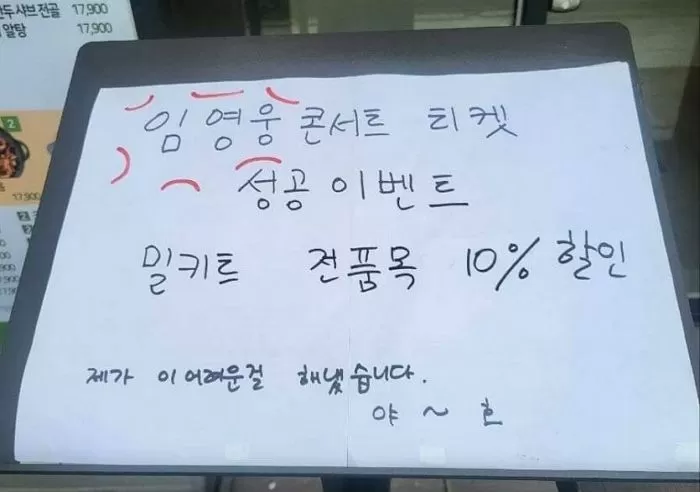 샤브전골 17,900
알탕 17,900
2
17,900
임영웅 콘서트 티켓
성공이벤트
밀키트 전품목 10% 할인
제가 이 어려운걸 해냈습니다.
야~호